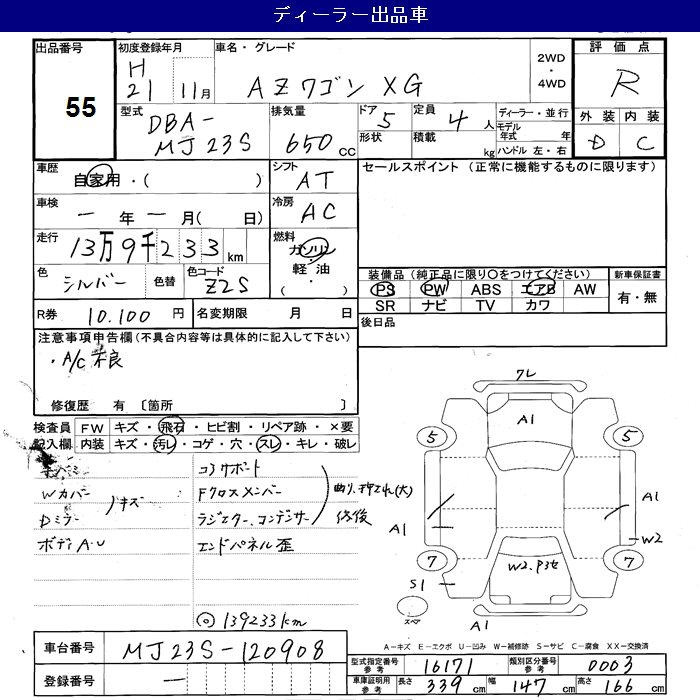 ディーラー出品車
出品番号
55
初度登録年月
H
21 11月
車名・グレード
AZワゴン XG
2WD
・
4WD
評価点
R
外装 内装
D C
型式
DBA-
MJ23S
排気量
650 cc
ドア 5
形状
定員 4 人
積載 kg
ディーラー・並行
モデル年式 年
ハンドル 左・右
車歴
自家用・( )
シフト
AT
セールスポイント (正常に機能するものに限ります)
車検
ー 年 ー 月( 日)
冷房
AC
走行
13万9千233 km
燃料
ガソリン
軽油
・
( )
色
シルバー
色替
色コード
Z2S
装備品 (純正品に限り○をつけてください)
PS PW ABS エアB AW
SR ナビ TV カワ
新車保証書
有・無
R券 10.100 円
名変期限 月 日
後日品
注意事項申告欄(不具合内容等は具体的に記入して下さい)
・A/C不良
修復歴 有 〔箇所 〕
検査員
記入欄
FW キズ・飛石・ヒビ割・リペア跡・×要
内装 キズ・汚レ・コゲ・穴・スレ・キレ・破レ
Wカバー
Dミラー
キズ
ボディA.U
コアサポート
Fクロスメンバー
ラジエター、コンデンサー
曲り、押され(大)
修後
エンドパネル歪
◎139233km
クレ
A1
5
5
A1
A1
W2
7
7
W2.P3セ
S1
スペア
A1
A-キズ E-エクボ U-凹み W-補修跡 S-サビ C-腐食 XX-交換済
車台番号
MJ23S-120908
登録番号
ー
型式指定番号
参考
16171
類別区分番号
参考
0003
車庫証明用
参考
長さ 339 cm
幅 147 cm
高さ 166 cm